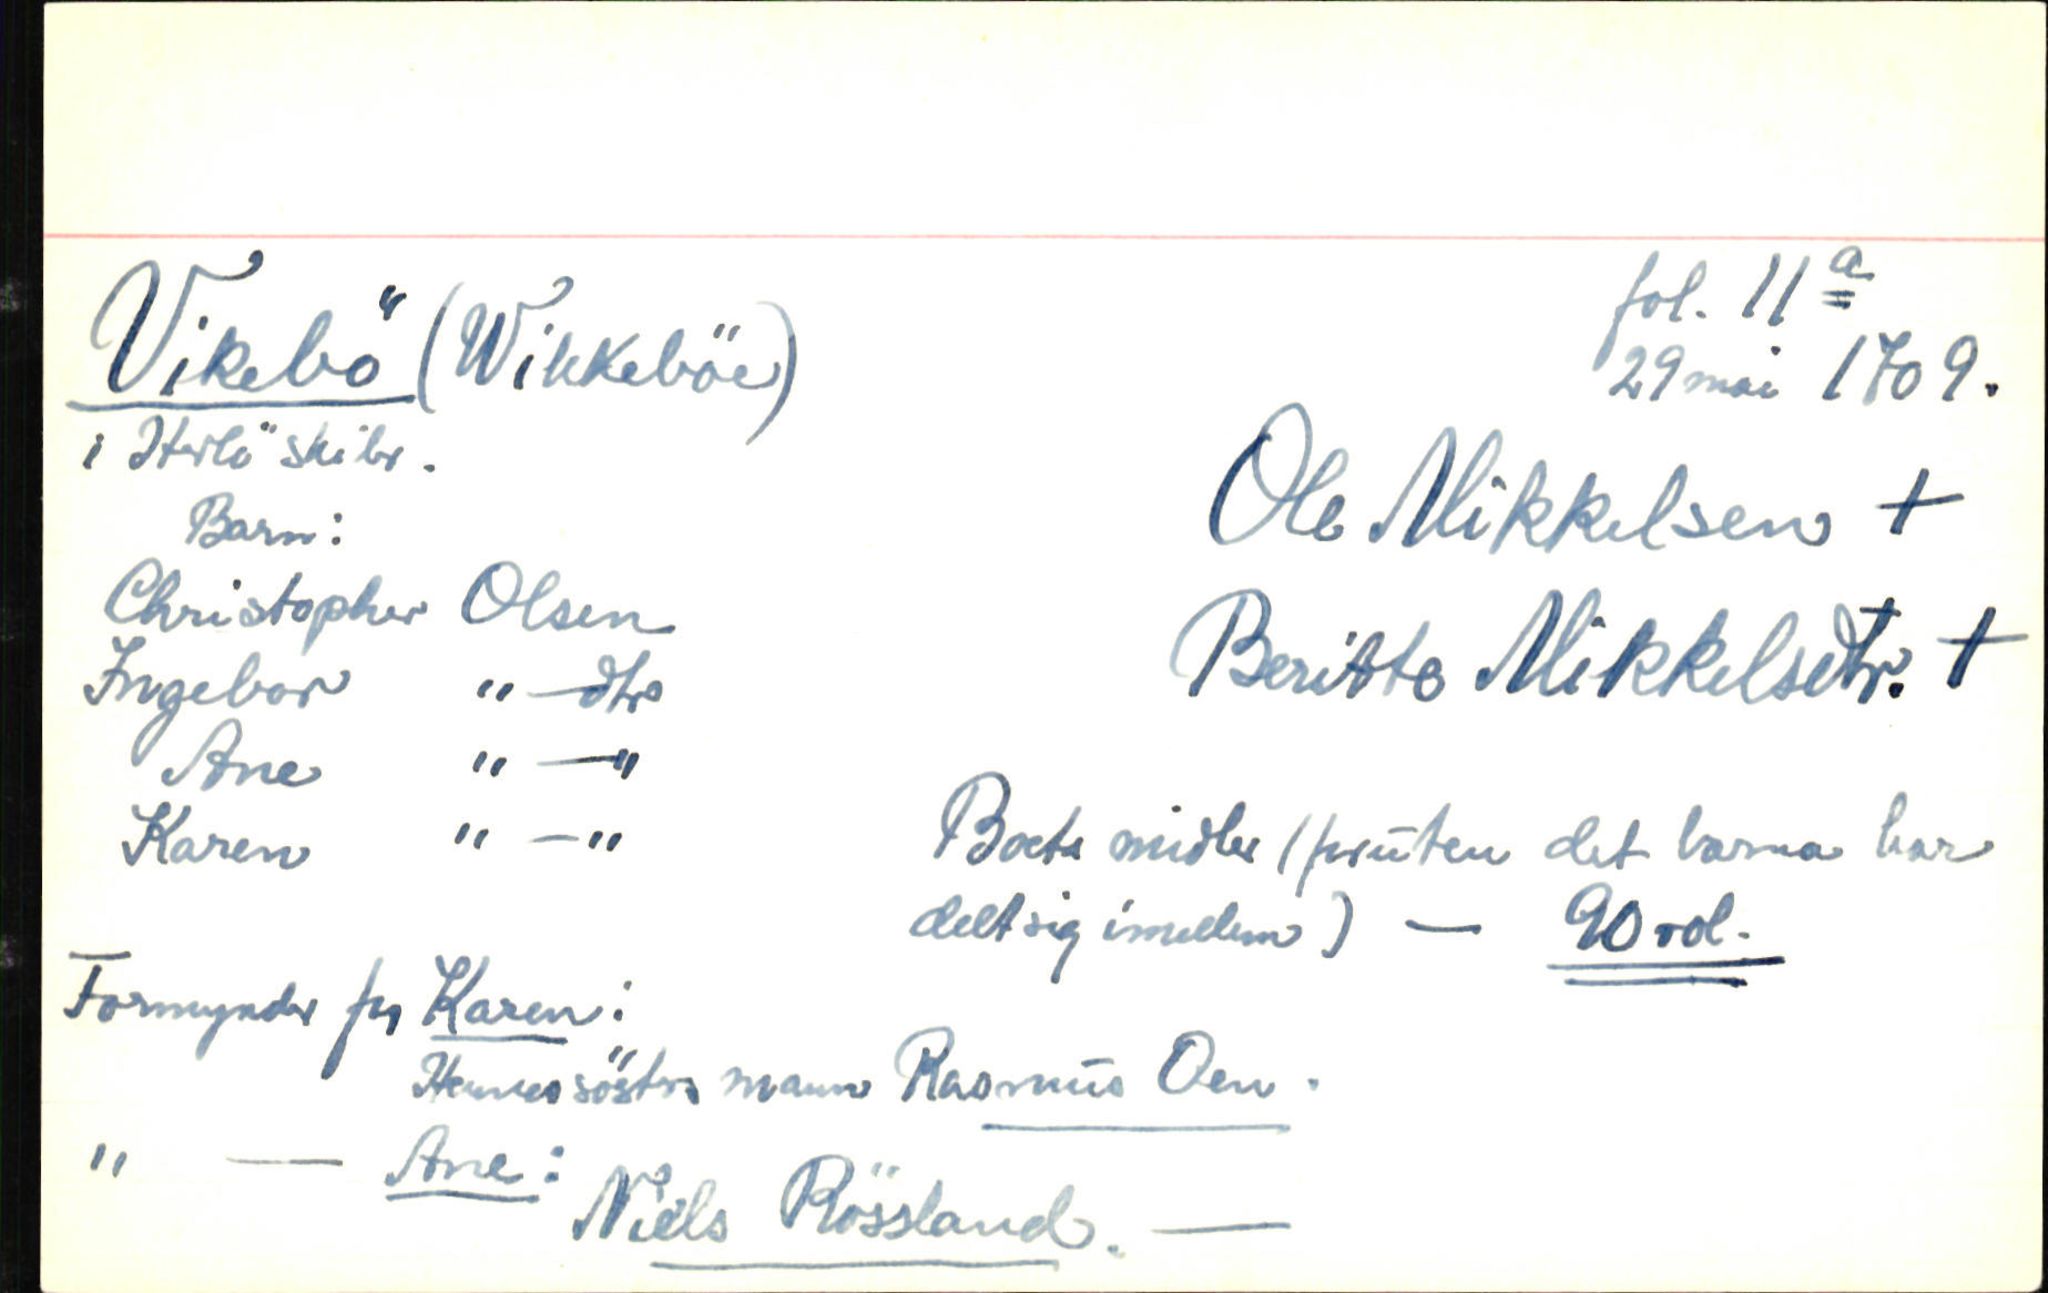 Vikebö (Wikkeböe)
i Herlö skibr.
fol. 11 a
29 mai 1709.
Ole Mikkelsen +
Beritte Mikkelsdtr. +
Barn:
Christopher Olsen
Ingebor " — dtr
Ane " — "
Karen " — "
Boets midler (foruten det barna har
delt sig imellem) — 90 rdl.
Formynder for Karen:
Hennes søsters mann Rasmus Oen.
" — Ane:
Niels Rössland. —